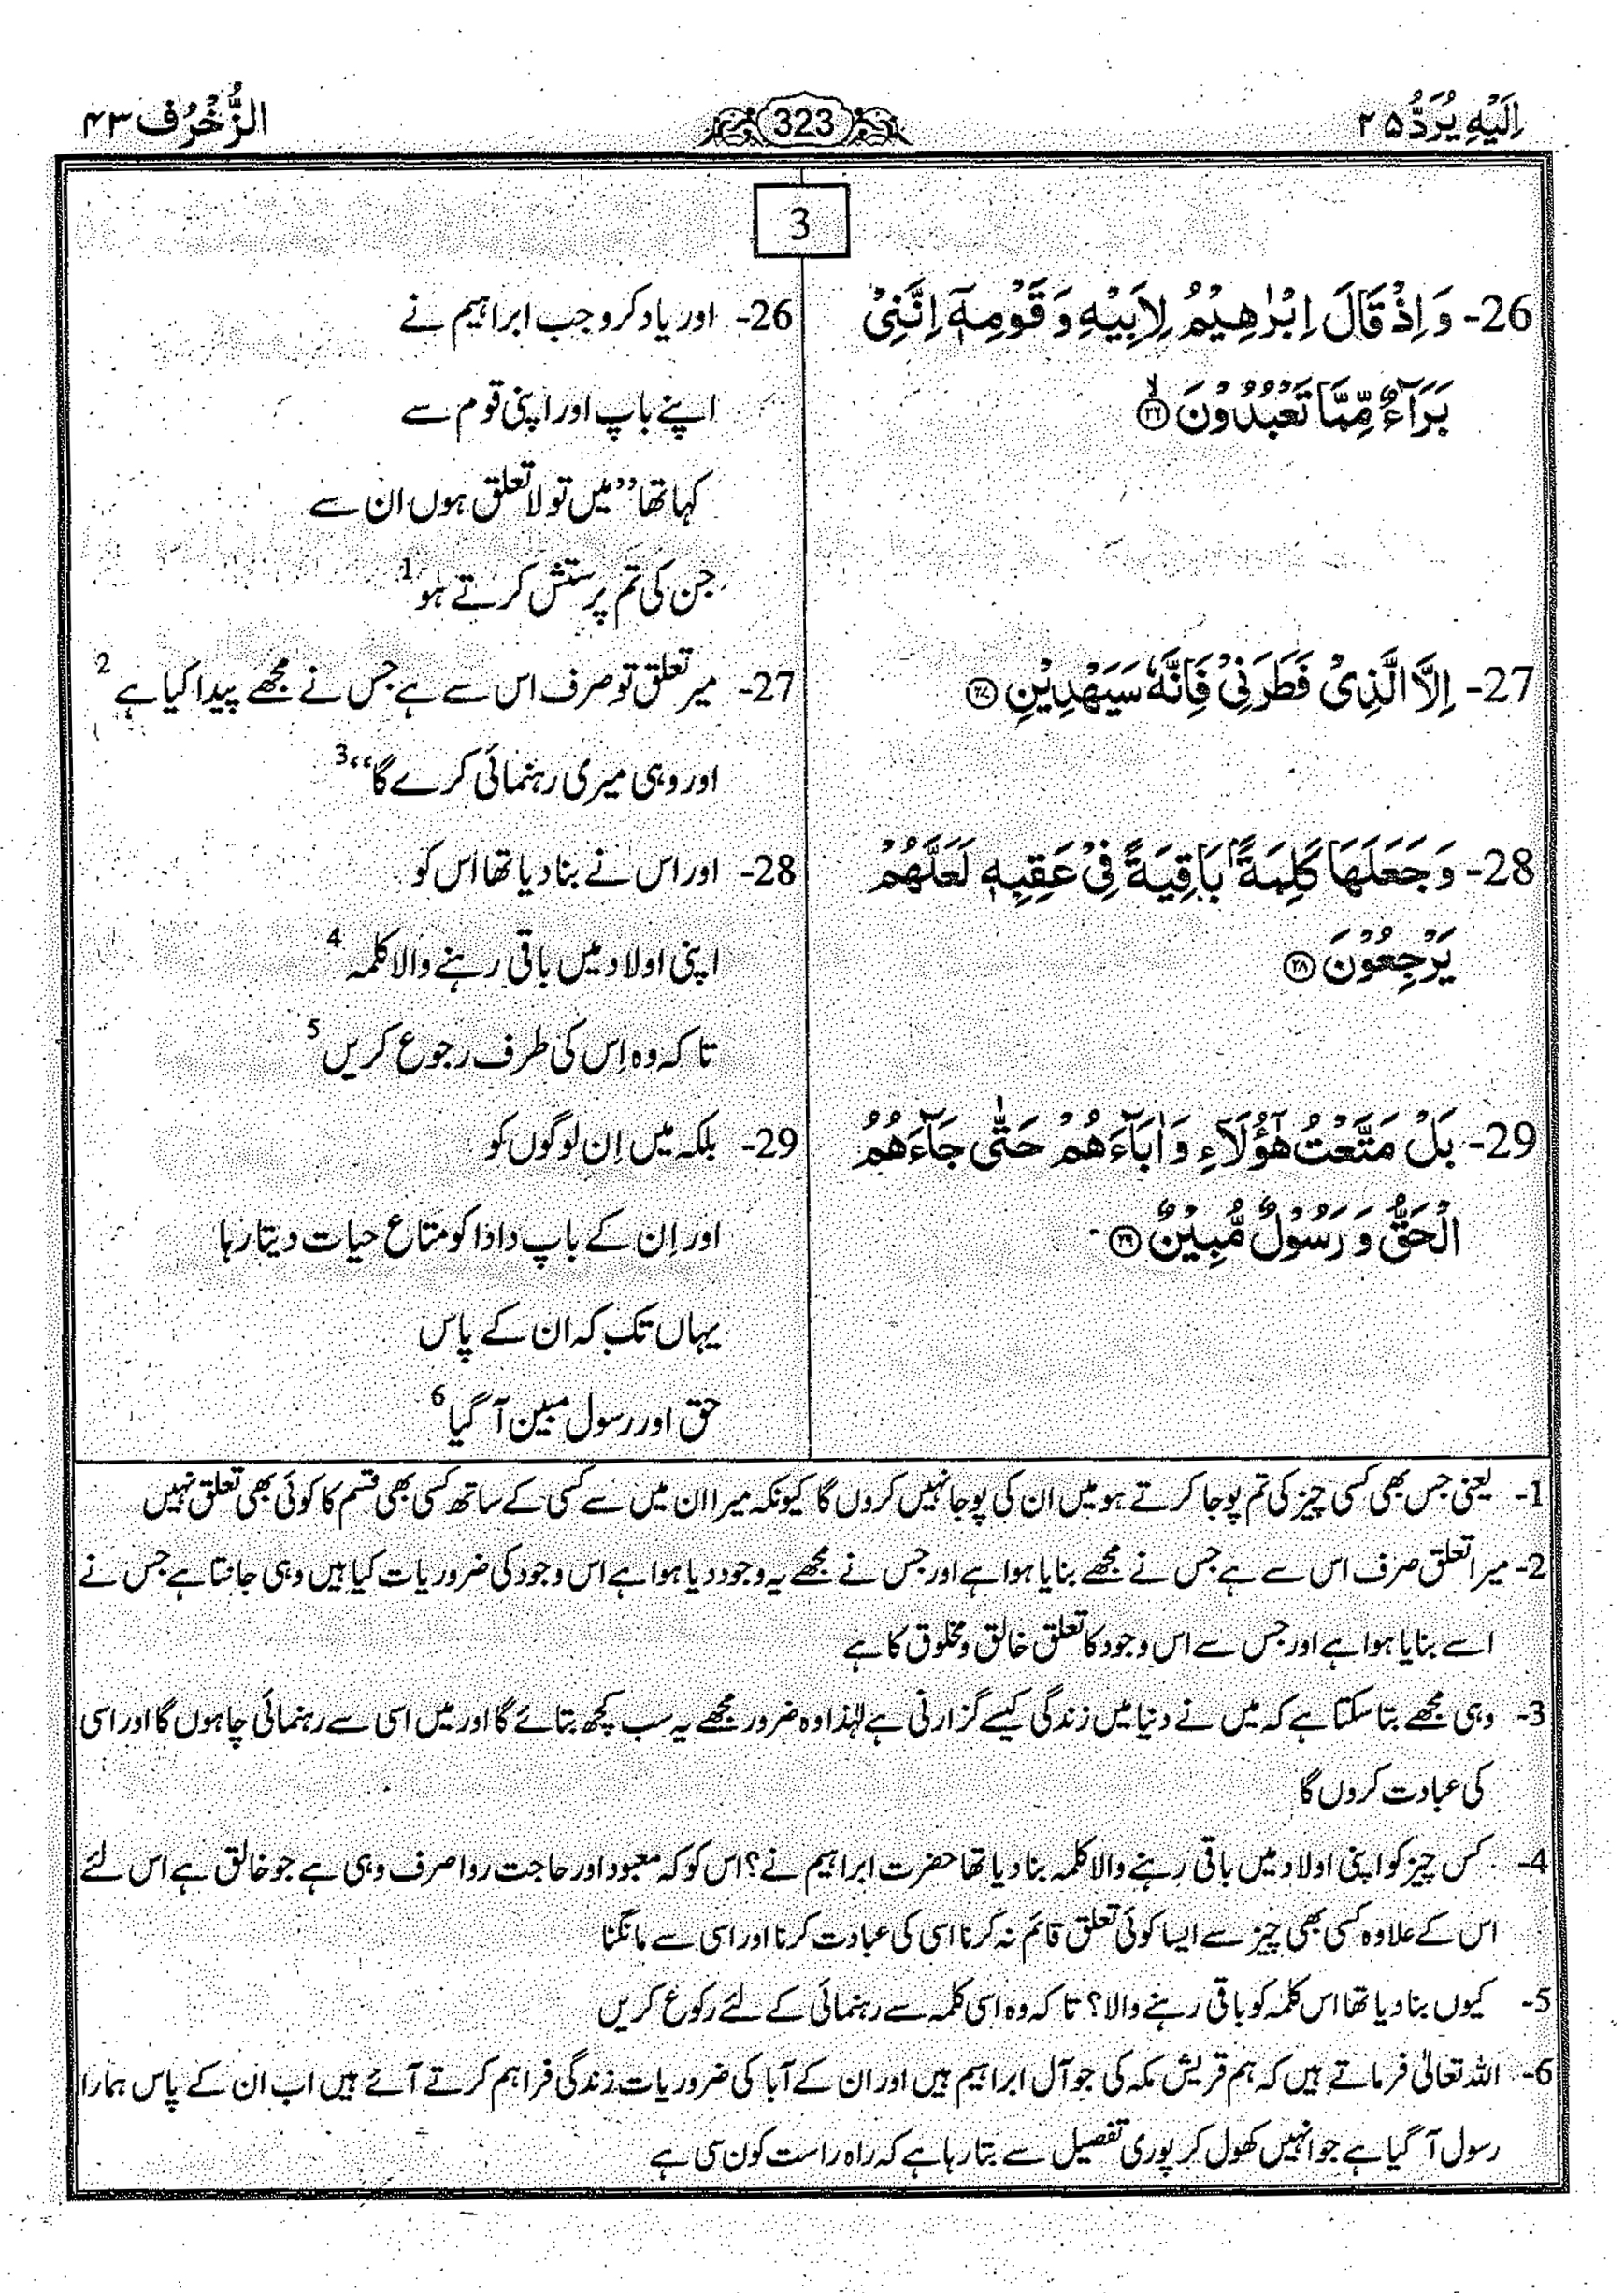 اِلَيْهِ يُرَدُّ ۲۵
323
الزُّخْرُف ۴۳
3
26- وَ اِذْ قَالَ اِبْرٰهِيْمُ لِاَبِيْهِ وَ قَوْمِهٖۤ اِنَّنِيْ
بَرَآءٌ مِّمَّا تَعْبُدُوْنَ ﴿۲۶﴾ۙ
27- اِلَّا الَّذِيْ فَطَرَنِيْ فَاِنَّهٗ سَيَهْدِيْنِ ﴿۲۷﴾
28- وَ جَعَلَهَا كَلِمَةًۢ بَاقِيَةً فِيْ عَقِبِهٖ لَعَلَّهُمْ
يَرْجِعُوْنَ ﴿۲۸﴾
29- بَلْ مَتَّعْتُ هٰۤؤُلَآءِ وَ اٰبَآءَهُمْ حَتّٰى جَآءَهُمُ
الْحَقُّ وَ رَسُوْلٌ مُّبِيْنٌ ﴿۲۹﴾
26- اور یاد کرو جب ابراہیم نے
اپنے باپ اور اپنی قوم سے
کہا تھا ’’میں تو لا تعلق ہوں ان سے
جن کی تم پرستش کرتے ہو 1
27- میر تعلق تو صرف اس سے ہے جس نے مجھے پیدا کیا ہے 2
اور وہی میری رہنمائی کرے گا‘‘ 3
28- اور اس نے بنا دیا تھا اس کو
اپنی اولاد میں باقی رہنے والا کلمہ 4
تا کہ وہ اِس کی طرف رجوع کریں 5
29- بلکہ میں اِن لوگوں کو
اور اِن کے باپ دادا کو متاع حیات دیتا رہا
یہاں تک کہ ان کے پاس
حق اور رسول مبین آ گیا 6
1- یعنی جس بھی کسی چیز کی تم پوجا کرتے ہو میں ان کی پوجا نہیں کروں گا کیونکہ میرا ان میں سے کسی کے ساتھ کسی بھی قسم کا کوئی بھی تعلق نہیں
2- میرا تعلق صرف اس سے ہے جس نے مجھے بنایا ہوا ہے اور جس نے مجھے یہ وجود دیا ہوا ہے اس وجود کی ضروریات کیا ہیں وہی جانتا ہے جس نے
اسے بنایا ہوا ہے اور جس سے اس وجود کا تعلق خالق و مخلوق کا ہے
3- وہی مجھے بتا سکتا ہے کہ میں نے دنیا میں زندگی کیسے گزارنی ہے لہٰذا وہ ضرور مجھے یہ سب کچھ بتائے گا اور میں اسی سے رہنمائی چاہوں گا اور اسی
کی عبادت کروں گا
4- کس چیز کو اپنی اولاد میں باقی رہنے والا کلمہ بنا دیا تھا حضرت ابراہیم نے؟ اس کو کہ معبود اور حاجت روا صرف وہی ہے جو خالق ہے اس لئے
اس کے علاوہ کسی بھی چیز سے ایسا کوئی تعلق قائم نہ کرنا اسی کی عبادت کرنا اور اسی سے مانگنا
5- کیوں بنا دیا تھا اس کلمہ کو باقی رہنے والا؟ تا کہ وہ اسی کلمہ سے رہنمائی کے لئے رکوع کریں
6- اللہ تعالیٰ فرماتے ہیں کہ ہم قریش مکہ کی جو آل ابراہیم ہیں اور ان کے آبا کی ضروریات زندگی فراہم کرتے آئے ہیں اب ان کے پاس ہمارا
رسول آ گیا ہے جو انہیں کھول کر پوری تفصیل سے بتا رہا ہے کہ راہ راست کون سی ہے